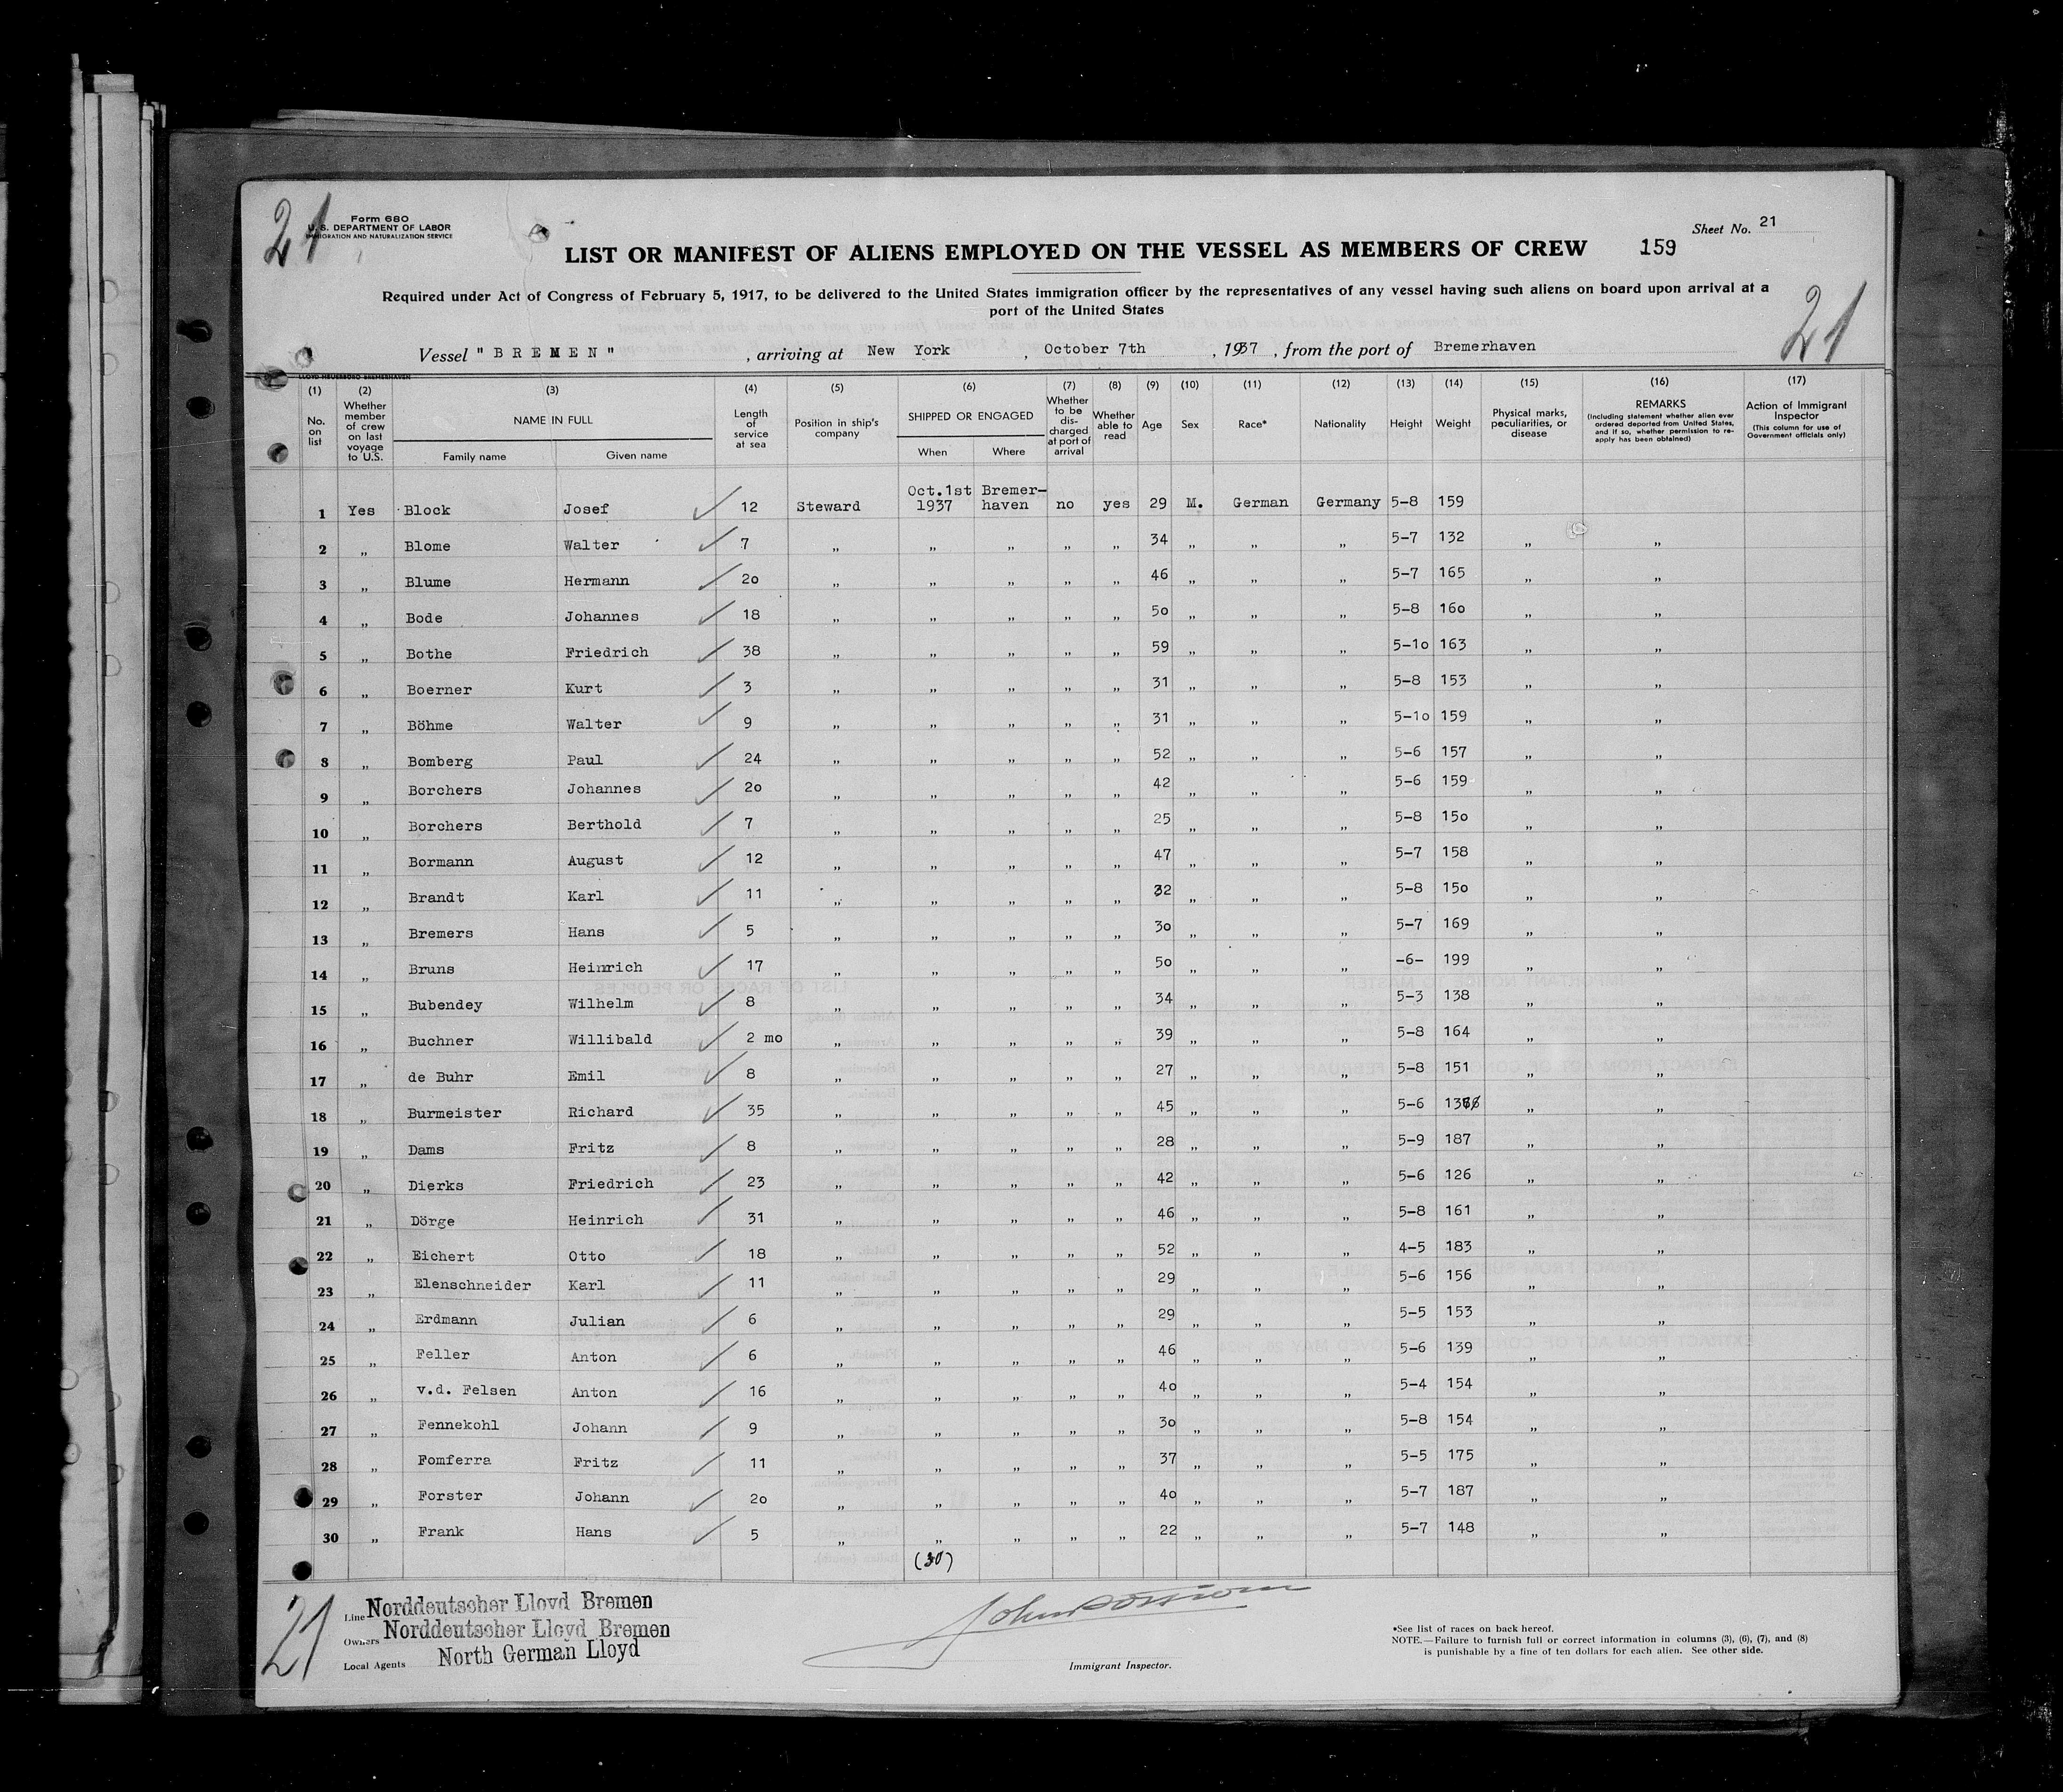 21
Form 680
U. S. DEPARTMENT OF LABOR
IMMIGRATION AND NATURALIZATION SERVICE
Sheet No. 21
LIST OR MANIFEST OF ALIENS EMPLOYED ON THE VESSEL AS MEMBERS OF CREW 159
Required under Act of Congress of February 5, 1917, to be delivered to the United States immigration officer by the representatives of any vessel having such aliens on board upon arrival at a
port of the United States
21
Vessel "BREMEN", arriving at New York, October 7th, 1937, from the port of Bremerhaven
(1) (2) (3) (4) (5) (6) (7) (8) (9) (10) (11) (12) (13) (14) (15) (16) (17)
No. on list
Whether member of crew on last voyage to U.S.
NAME IN FULL
Family name Given name
Length of service at sea
Position in ship's company
SHIPPED OR ENGAGED
When Where
Whether to be discharged at port of arrival
Whether able to read
Age
Sex
Race*
Nationality
Height
Weight
Physical marks, peculiarities, or disease
REMARKS
(Including statement whether alien ever ordered deported from United States, and if so, whether permission to re-apply has been obtained)
Action of Immigrant Inspector
(This column for use of Government officials only)
1 Yes Block Josef ✓ 12 Steward Oct.1st 1937 Bremer-haven no yes 29 M. German Germany 5-8 159
2 „ Blome Walter ✓ 7 „ „ „ „ „ 34 „ „ „ 5-7 132 „ „
3 „ Blume Hermann ✓ 20 „ „ „ „ „ 46 „ „ „ 5-7 165 „ „
4 „ Bode Johannes ✓ 18 „ „ „ „ „ 50 „ „ „ 5-8 160 „ „
5 „ Bothe Friedrich ✓ 38 „ „ „ „ „ 59 „ „ „ 5-10 163 „ „
6 „ Boerner Kurt ✓ 3 „ „ „ „ „ 31 „ „ „ 5-8 153 „ „
7 „ Böhme Walter ✓ 9 „ „ „ „ „ 31 „ „ „ 5-10 159 „ „
8 „ Bomberg Paul ✓ 24 „ „ „ „ „ 52 „ „ „ 5-6 157 „ „
9 „ Borchers Johannes ✓ 20 „ „ „ „ „ 42 „ „ „ 5-6 159 „ „
10 „ Borchers Berthold ✓ 7 „ „ „ „ „ 25 „ „ „ 5-8 150 „ „
11 „ Bormann August ✓ 12 „ „ „ „ „ 47 „ „ „ 5-7 158 „ „
12 „ Brandt Karl ✓ 11 „ „ „ „ „ 32 „ „ „ 5-8 150 „ „
13 „ Bremers Hans ✓ 5 „ „ „ „ „ 30 „ „ „ 5-7 169 „ „
14 „ Bruns Heinrich ✓ 17 „ „ „ „ „ 50 „ „ „ -6- 199 „ „
15 „ Bubendey Wilhelm ✓ 8 „ „ „ „ „ 34 „ „ „ 5-3 138 „ „
16 „ Buchner Willibald ✓ 2 mo „ „ „ „ „ 39 „ „ „ 5-8 164 „ „
17 „ de Buhr Emil ✓ 8 „ „ „ „ „ 27 „ „ „ 5-8 151 „ „
18 „ Burmeister Richard ✓ 35 „ „ „ „ „ 45 „ „ „ 5-6 „ „
19 „ Dams Fritz ✓ 8 „ „ „ „ „ 28 „ „ „ 5-9 187 „ „
20 „ Dierks Friedrich ✓ 23 „ „ „ „ „ 42 „ „ „ 5-6 126 „ „
21 „ Dörge Heinrich ✓ 31 „ „ „ „ „ 46 „ „ „ 5-8 161 „ „
22 „ Eichert Otto ✓ 18 „ „ „ „ „ 52 „ „ „ 4-5 183 „ „
23 „ Elenschneider Karl ✓ 11 „ „ „ „ „ 29 „ „ „ 5-6 156 „ „
24 „ Erdmann Julian ✓ 6 „ „ „ „ „ 29 „ „ „ 5-5 153 „ „
25 „ Feller Anton ✓ 6 „ „ „ „ „ 46 „ „ „ 5-6 139 „ „
26 „ v.d. Felsen Anton ✓ 16 „ „ „ „ „ 40 „ „ „ 5-4 154 „ „
27 „ Fennekohl Johann ✓ 9 „ „ „ „ „ 30 „ „ „ 5-8 154 „ „
28 „ Fomferra Fritz ✓ 11 „ „ „ „ „ 37 „ „ „ 5-5 175 „ „
29 „ Forster Johann ✓ 20 „ „ „ „ „ 40 „ „ „ 5-7 187 „ „
30 „ Frank Hans ✓ 5 „ „ „ „ „ 22 „ „ „ 5-7 148 „ „
(30)
21
Line Norddeutscher Lloyd Bremen
Owners Norddeutscher Lloyd Bremen
Local Agents North German Lloyd
Immigrant Inspector.
*See list of races on back hereof.
NOTE.—Failure to furnish full or correct information in columns (3), (6), (7), and (8)
is punishable by a fine of ten dollars for each alien. See other side.